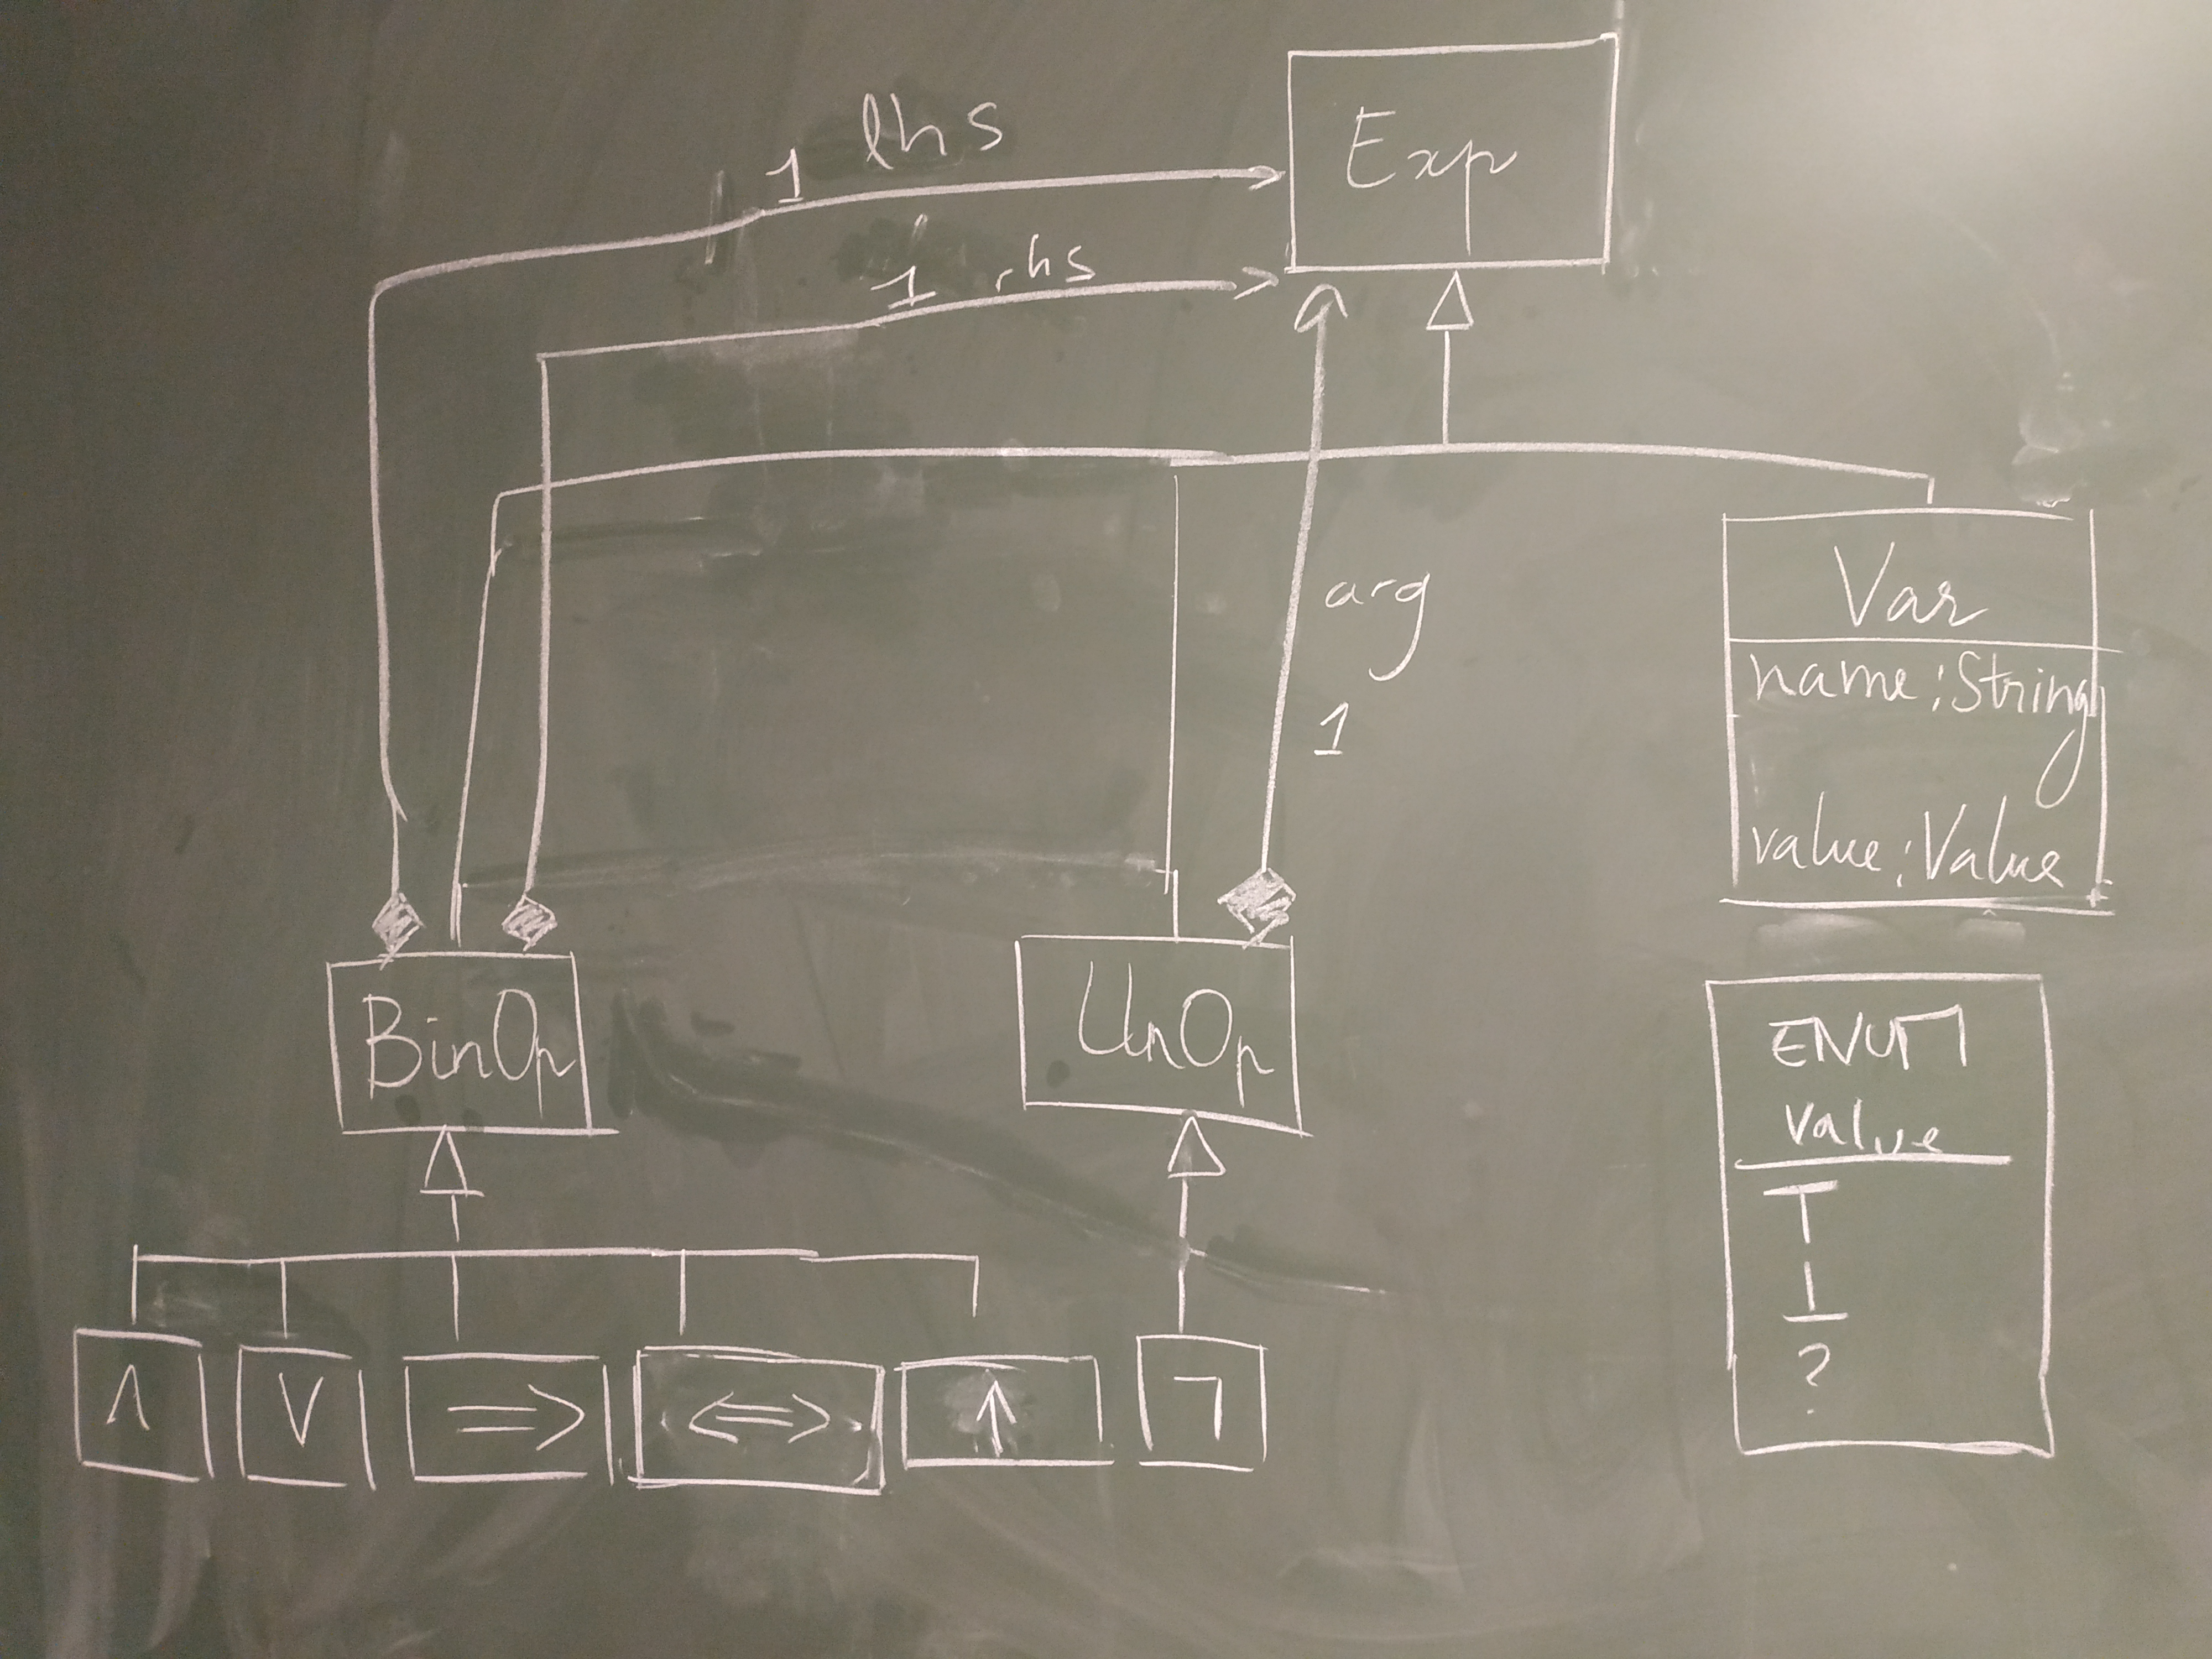 1 lhs
Exp
1 rhs
arg
1
Var
name:String
value:Value
BinOp
UnOp
ENUM
value
⊤
⊥
?
∧
∨
⇒
⇔
↑
¬